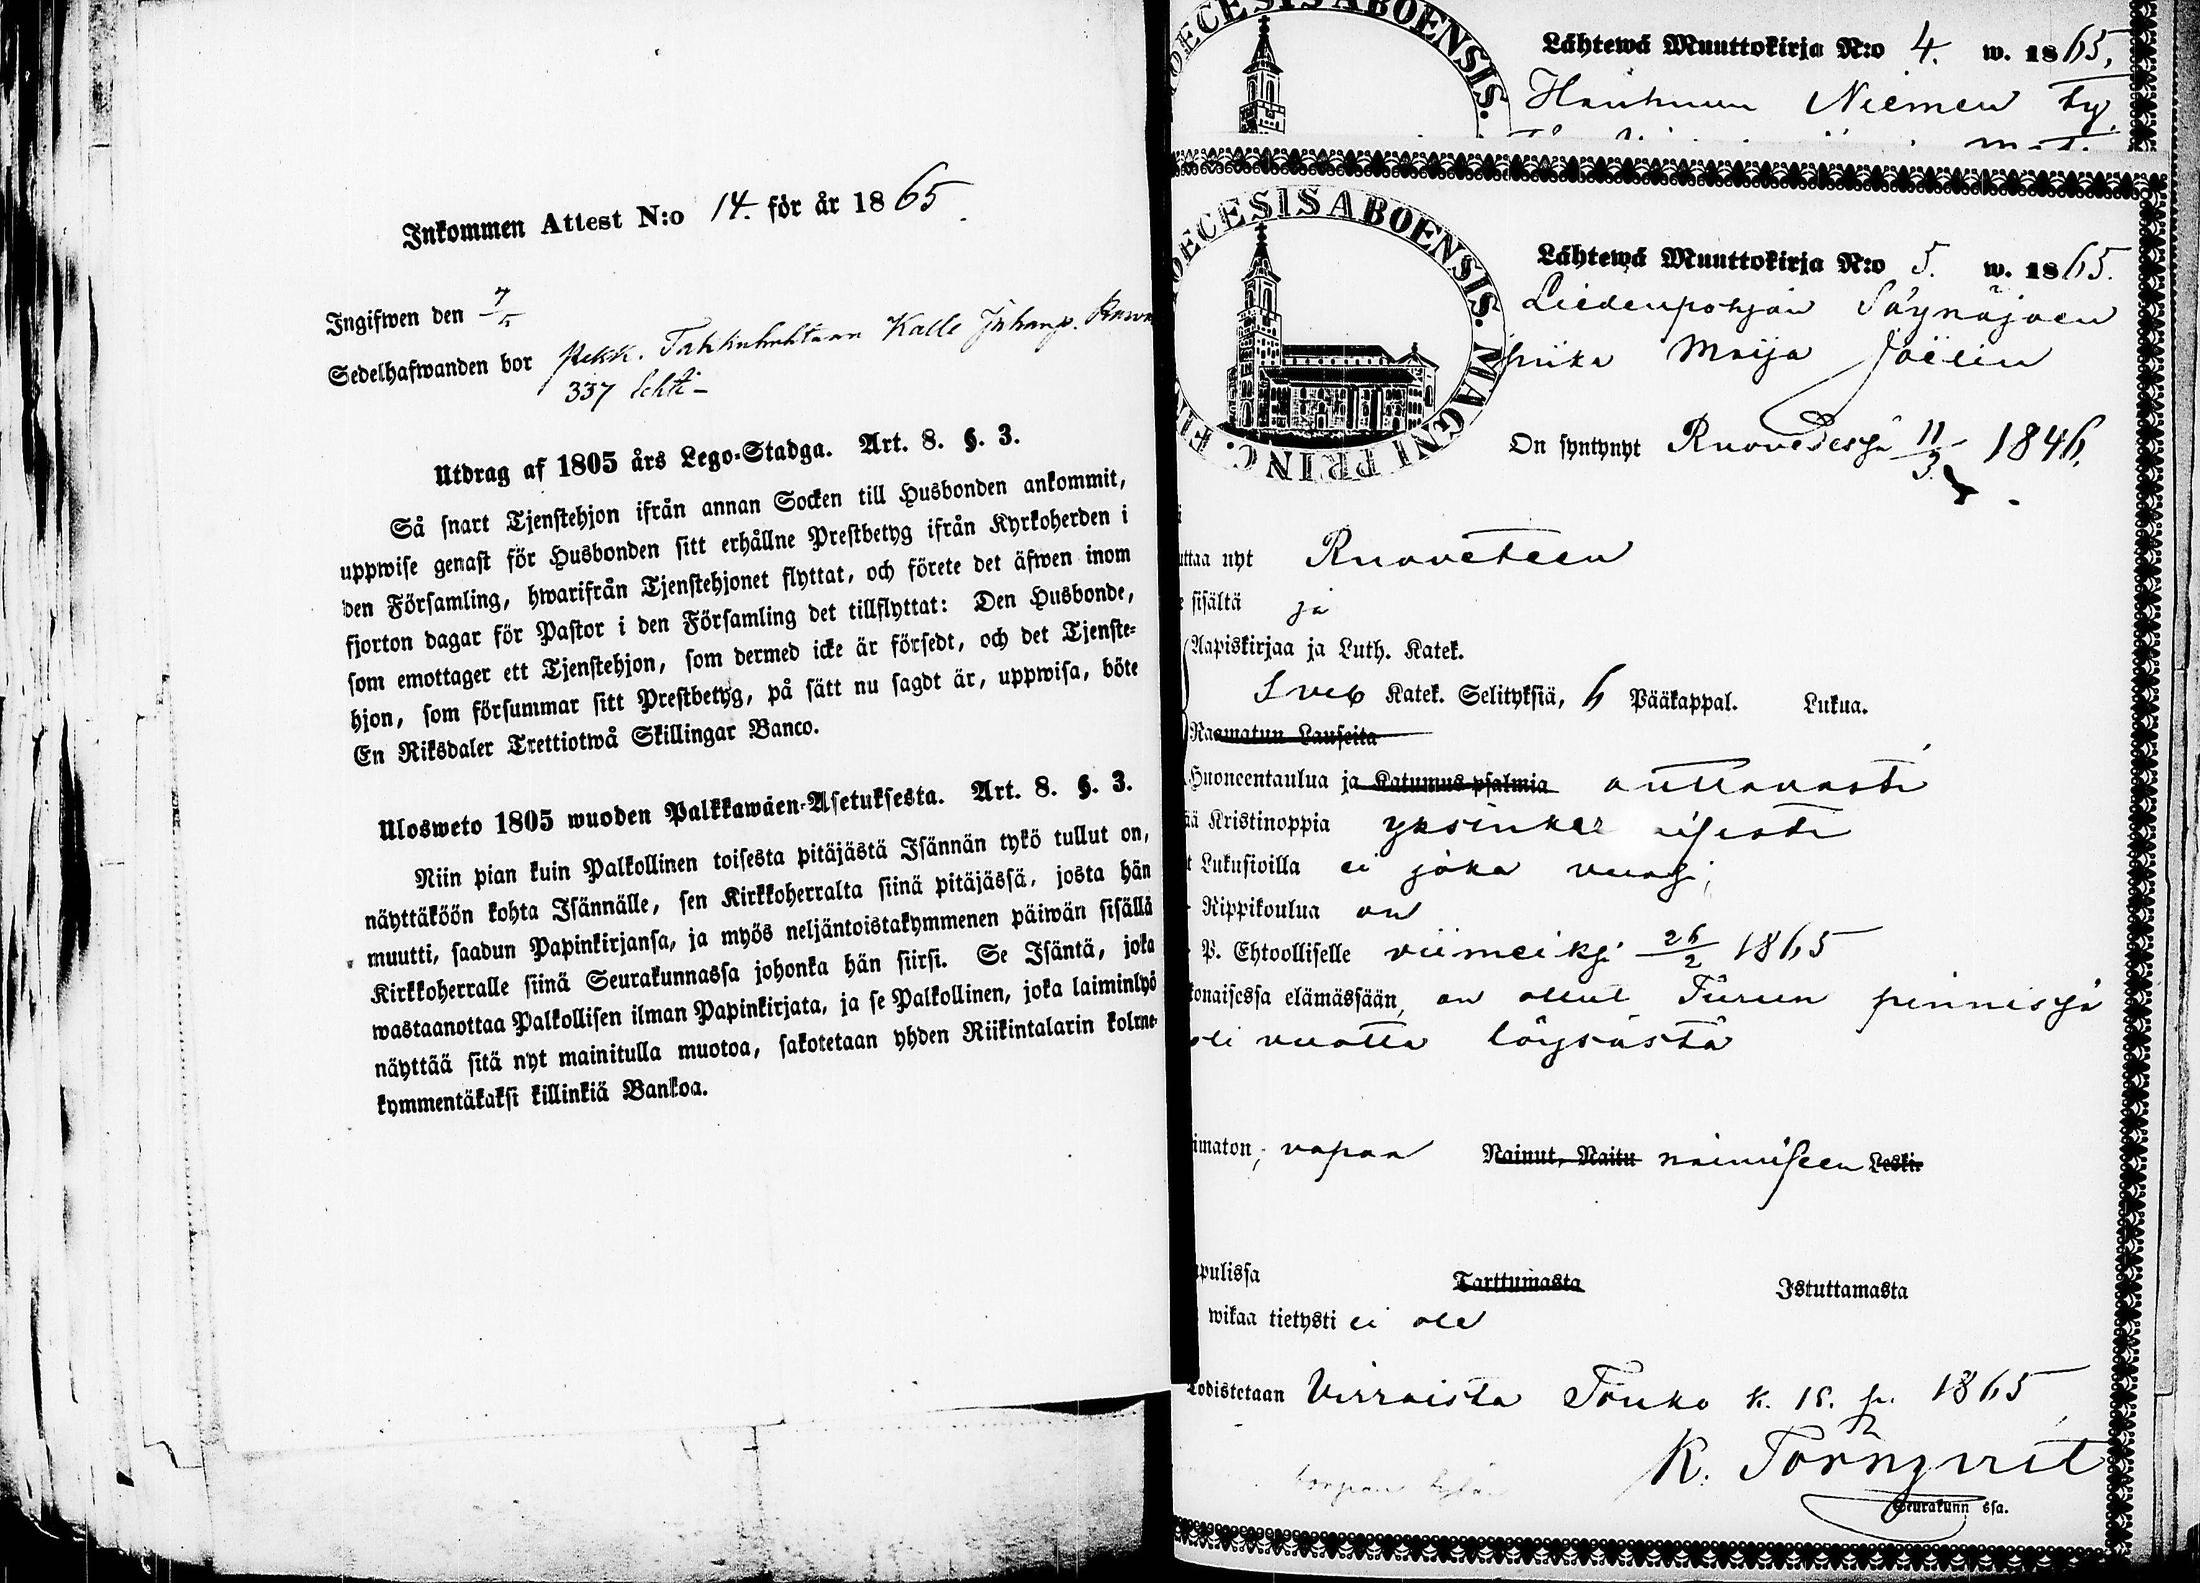 Inkommen Attest N:o 14. för år 1865.
Ingifwen den 7/5
Sedelhafwanden bor Kalle
337
Utdrag af 1805 års Lego-Stadga. Art. 8. §. 3.
Så snart Tjenstehjon ifrån annan Socken till Husbonden ankommit,
uppwise genast för Husbonden sitt erhållne Prestbetyg ifrån Kyrkoherden i
den Församling, hwarifrån Tjenstehjonet flyttat, och förete det äfwen inom
fjorton dagar för Pastor i den Församling det tillflyttat: Den Husbonde,
som emottager ett Tjenstehjon, som dermed icke är försedt, och det Tjenste-
hjon, som försummar sitt Prestbetyg, på sätt nu sagdt är, uppwisa, böte
En Riksdaler Trettiotwå Skillingar Banco.
Ulosweto 1805 wuoden Palkkawäen-Asetuksesta. Art. 8. §. 3.
Niin pian kuin Palkollinen toisesta pitäjästä Isännän tykö tullut on,
näyttäköön kohta Isännälle, sen Kirkkoherralta siinä pitäjässä, josta hän
muutti, saadun Papinkirjansa, ja myös neljäntoistakymmenen päiwän sisällä
Kirkkoherralle siinä Seurakunnassa johonka hän siirsi. Se Isäntä, joka
wastaanottaa Palkollisen ilman Papinkirjata, ja se Palkollinen, joka laiminlyö
näyttää sitä nyt mainitulla muotoa, sakotetaan yhden Riikintalarin kolme-
kymmentäkaksi killinkiä Bankoa.
DECESIS ABOENSIS.
Lähtewä Muuttokirja N:o 4. w. 1865,
Niemen ty.
DECESIS ABOENSIS. MAGNI PRINC. FIN
Lähtewä Muuttokirja N:o 5. w. 1865.
Liedenpohjan Säynäjoen
piika Maija
On syntynyt Ruovedesjä 11/3 1846.
uttaa nyt Ruoveteen
sisältä ja
Aapiskirjaa ja Luth. Katek.
Sveb Katek. Selityksiä, 6 Pääkappal. Lukua.
Raamatun Lauseita
Huoneentaulua ja Katumus-psalmia auttavasti
ää Kristinoppia yksinker aisesti
t Lukusioilla ei joka vuosi;
Rippikoulua on
P. Ehtoolliselle viimeiksi 26/2 1865
konaisessa elämässään, on ollut Turun
vuotta
imaton; vapaa Nainut, Naitu naimiseen Leski.
pulissa Tarttumasta Istuttamasta
wikaa tietysti ei ole
Todistetaan Virraista Touko k. 15. p. 1865
K. Törnqvist
Seurakunn ssa.